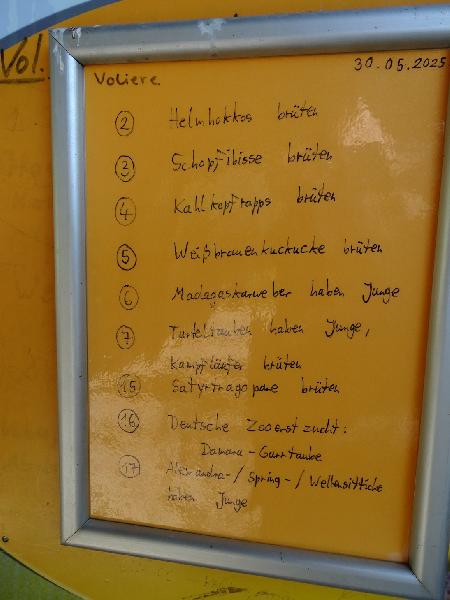 Vol.
Voliere
30.05.2025
2 Helmhokkos brüten
3 Schopfibisse brüten
4 Kahlkopfrapps brüten
5 Weißbrauenkuckucke brüten
6 Madagaskarweber haben Junge
7 Turteltauben haben Junge,
Kampfläufer brüten
15 Satyrtragopane brüten
16 Deutsche Zooerstzucht:
Damara-Gurrtaube
17 Alexandra-/Spring-/Wellensittiche
haben Junge